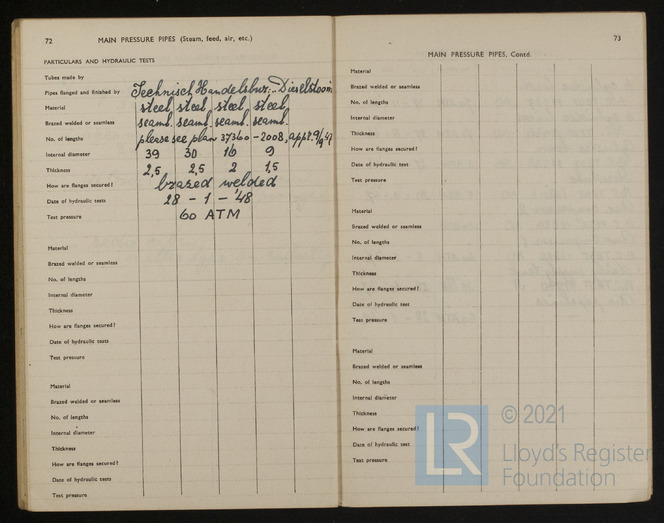 72 MAIN PRESSURE PIPES (Steam, feed, air, etc.)
PARTICULARS AND HYDRAULIC TESTS
Tubes made by
Pipes flanged and finished by Technisch Handelsbur: Dieselstoom
Material steel, steel, steel, steel,
Brazed welded or seamless seaml. seaml. seaml. seaml.
No. of lengths please see plan 37360-2008, app
Internal diameter 39 30 16 9
Thickness 2,5 2,5 2 1,5
How are flanges secured? brazed welded
Date of hydraulic tests 28-1-'48
Test pressure 60 ATM
Material
Brazed welded or seamless
No. of lengths
Internal diameter
Thickness
How are flanges secured?
Date of hydraulic tests
Test pressure
Material
Brazed welded or seamless
No. of lengths
Internal diameter
Thickness
How are flanges secured?
Date of hydraulic tests
Test pressure
73
MAIN PRESSURE PIPES, Contd.
Material
Brazed welded or seamless
No. of lengths
Internal diameter
Thickness
How are flanges secured?
Date of hydraulic test
Test pressure
Material
Brazed welded or seamless
No. of lengths
Internal diameter
Thickness
How are flanges secured?
Date of hydraulic test
Test pressure
Material
Brazed welded or seamless
No. of lengths
Internal diameter
Thickness
How are flanges secured?
Date of hydraulic test
Test pressure
LR
© 2021
Lloyd's Register
Foundation